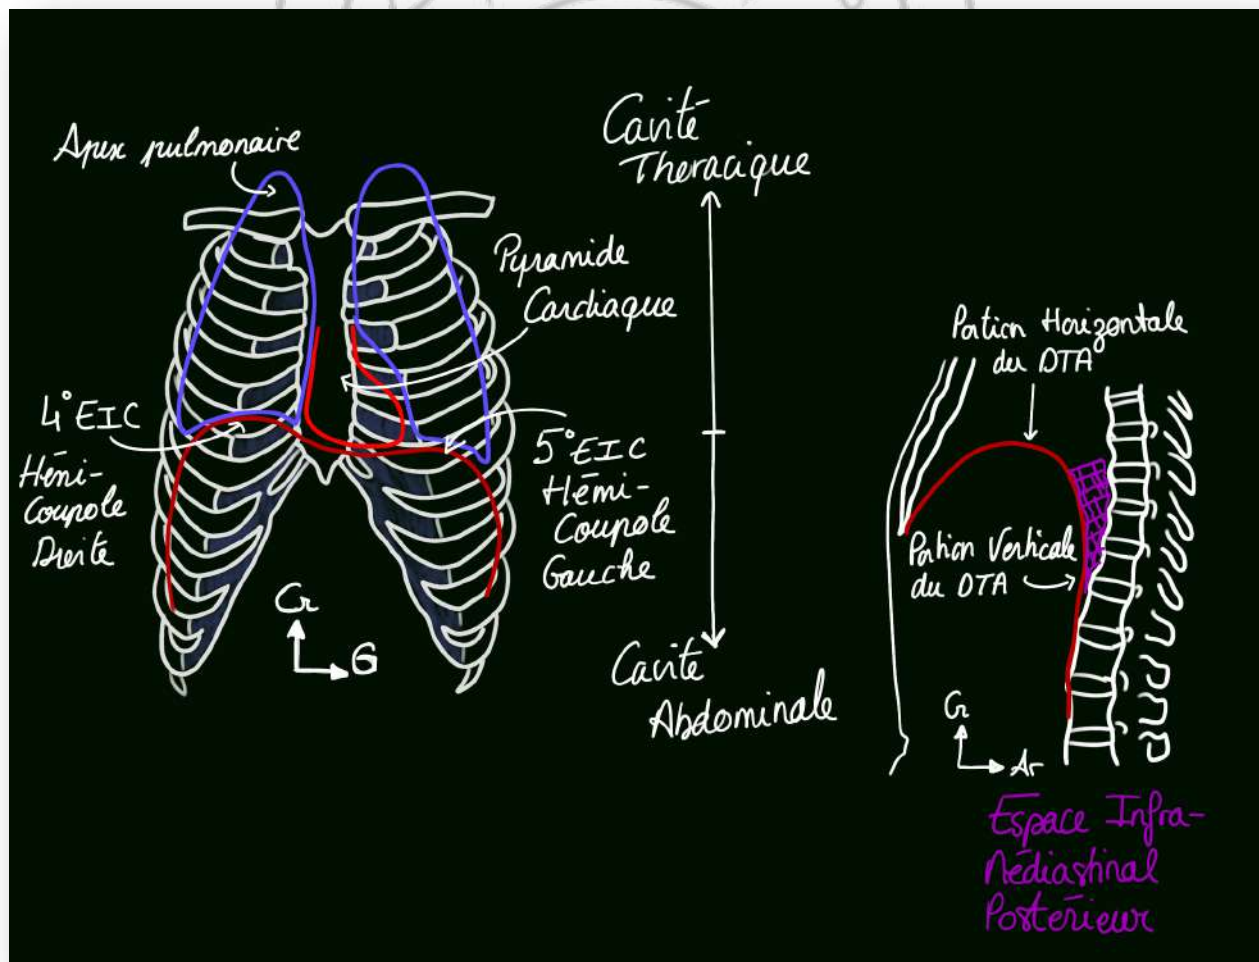 Apex pulmonaire
Cavité
Theracique
Pyramide
Cardiaque
4° EIC
Hémi-
Coupole
Droite
5° EIC
Hémi-
Coupole
Gauche
Cr
G
Cavité
Abdominale
Portion Horizontale
du DTA
Portion Verticale
du DTA
Cr
Ar
Espace Infra-
Médiastinal
Postérieur